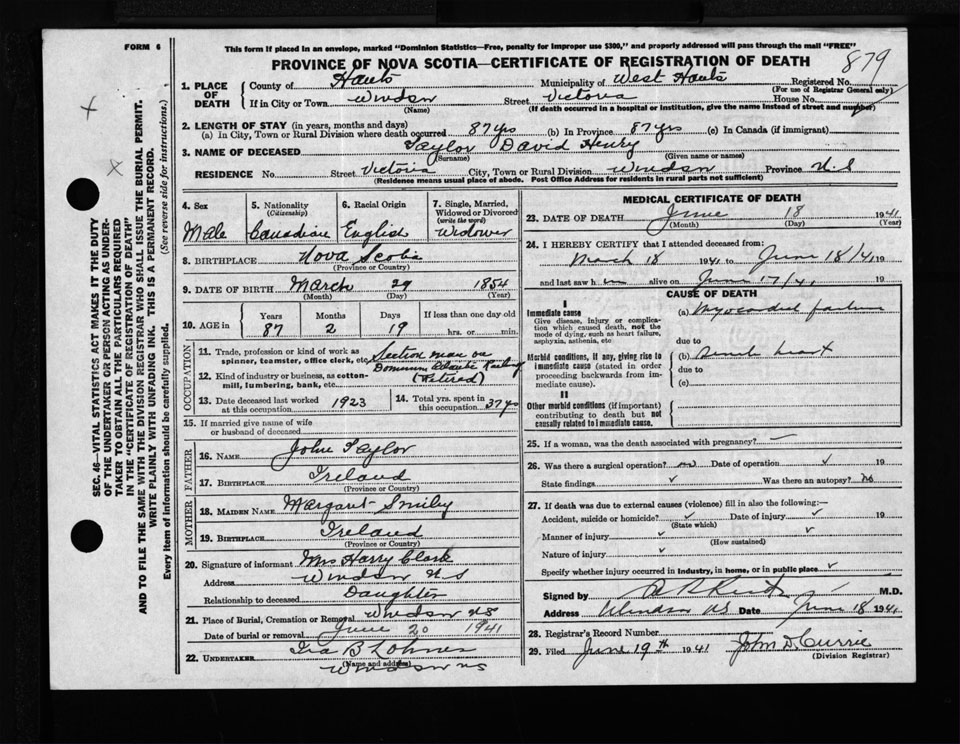 FORM 6
This form if placed in an envelope, marked "Dominion Statistics—Free, penalty for improper use $300," and properly addressed will pass through the mail "FREE"
PROVINCE OF NOVA SCOTIA—CERTIFICATE OF REGISTRATION OF DEATH
879
1. PLACE OF DEATH
County of Hants Municipality of West Hants Registered No.
(For use of Registrar General only)
If in City or Town Windsor Street Victoria House No.
(Name) (If death occurred in a hospital or institution, give the name instead of street and number)
2. LENGTH OF STAY (in years, months and days)
(a) In City, Town or Rural Division where death occurred 87 yrs (b) In Province 87 yrs (c) In Canada (if immigrant)
3. NAME OF DECEASED Taylor David Henry
(Surname) (Given name or names)
RESIDENCE No. Street Victoria City, Town or Rural Division Windsor Province N.S
(Residence means usual place of abode. Post Office Address for residents in rural parts not sufficient)
4. Sex Male
5. Nationality (Citizenship) Canadian
6. Racial Origin English
7. Single, Married, Widowed or Divorced (write the word) Widower
8. BIRTHPLACE Nova Scotia
(Province or Country)
9. DATE OF BIRTH March 29 1854
(Month) (Day) (Year)
10. AGE in Years Months Days If less than one day old
87 2 19 hrs. or min.
OCCUPATION
11. Trade, profession or kind of work as spinner, teamster, office clerk, etc. Section man on
12. Kind of industry or business, as cotton-mill, lumbering, bank, etc. Dominion Atlantic Railway (Retired)
13. Date deceased last worked at this occupation 1923
14. Total yrs. spent in this occupation 37 yrs
15. If married give name of wife or husband of deceased
FATHER
16. NAME John Taylor
17. BIRTHPLACE Ireland
(Province or Country)
MOTHER
18. MAIDEN NAME Margaret Smiley
19. BIRTHPLACE Ireland
(Province or Country)
20. Signature of informant Mrs Harry Clark
Address Windsor N S
Relationship to deceased Daughter
21. Place of Burial, Cremation or Removal Windsor NS
Date of burial or removal June 20 1941
22. UNDERTAKER Ira B Lohnes
(Name and address)
Windsor NS
MEDICAL CERTIFICATE OF DEATH
23. DATE OF DEATH June 18 1941
(Month) (Day) (Year)
24. I HEREBY CERTIFY that I attended deceased from:
March 18 1941 to June 18/41 19
and last saw h im alive on June 17/41 19
CAUSE OF DEATH
I
Immediate cause
Give disease, injury or complication which caused death, not the mode of dying, such as heart failure, asphyxia, asthenia, etc
(a) Myocardial failure
due to
Morbid conditions, if any, giving rise to immediate cause (stated in order proceeding backwards from immediate cause).
(b) Senile heart
due to
(c)
II
Other morbid conditions (if important) contributing to death but not causally related to immediate cause.
25. If a woman, was the death associated with pregnancy? —
26. Was there a surgical operation? no Date of operation ✓ 19
State findings ✓ Was there an autopsy? No
27. If death was due to external causes (violence) fill in also the following:—
Accident, suicide or homicide? ✓ Date of injury ✓ 19
(State which)
Manner of injury ✓ ✓
(How sustained)
Nature of injury ✓
Specify whether injury occurred in Industry, in home, or in public place ✓
Signed by M.D.
Address Windsor NS Date June 18 1941
28. Registrar's Record Number
29. Filed June 19th 1941 John D. Currie
(Division Registrar)
SEC. 46—VITAL STATISTICS ACT MAKES IT THE DUTY
OF THE UNDERTAKER OR PERSON ACTING AS UNDER-
TAKER TO OBTAIN ALL THE PARTICULARS REQUIRED
IN THE "CERTIFICATE OF REGISTRATION OF DEATH"
AND TO FILE THE SAME WITH THE DIVISION REGISTRAR WHO SHALL ISSUE THE BURIAL PERMIT.
WRITE PLAINLY WITH UNFADING INK. THIS IS A PERMANENT RECORD.
Every item of information should be carefully supplied. (See reverse side for instructions.)